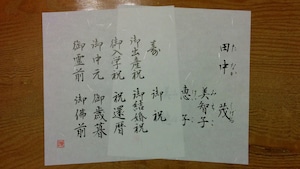 田中 茂
美智子
恵子
寿 御祝
御出産祝 御結婚祝
御入学祝 祝還暦
御中元 御歳暮
御霊前 御佛前